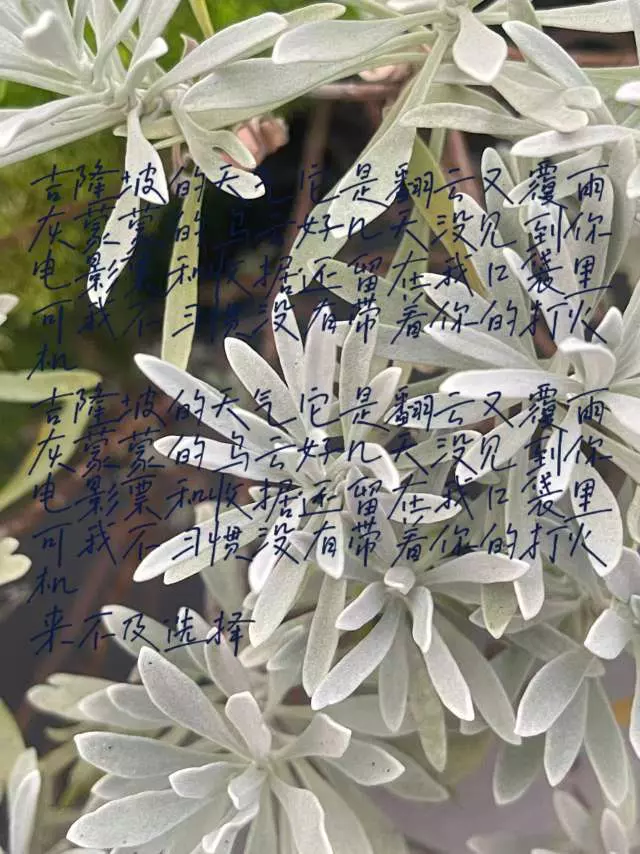 吉隆坡的天气它是翻云又覆雨
灰蒙蒙的乌云好几天没见到你
电影票和收据还留在我口袋里
可我不习惯没有带着你的打火
机
吉隆坡的天气它是翻云又覆雨
灰蒙蒙的乌云好几天没见到你
电影票和收据还留在我口袋里
可我不习惯没有带着你的打火
机
来不及选择